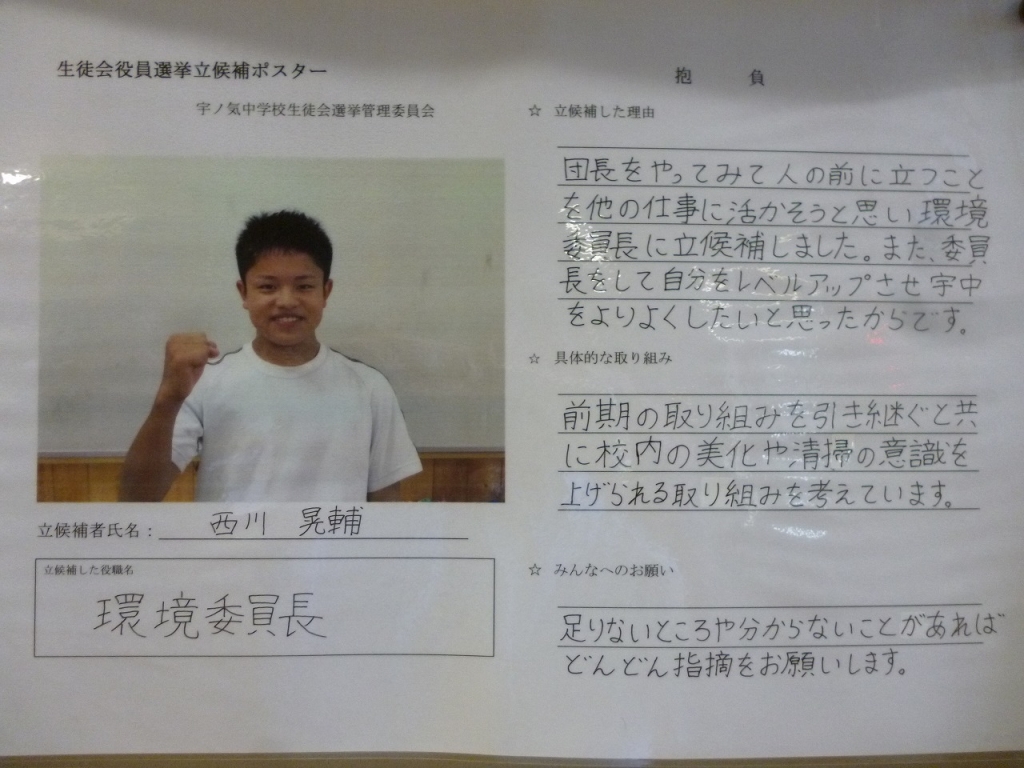 生徒会役員選挙立候補ポスター
宇ノ気中学校生徒会選挙管理委員会
立候補者氏名：西川 晃輔
立候補した役職名
環境委員長
抱 負
☆ 立候補した理由
団長をやってみて人の前に立つこと
を他の仕事に活かそうと思い環境
委員長に立候補しました。また、委員
長をして自分をレベルアップさせ宇中
をよりよくしたいと思ったからです。
☆ 具体的な取り組み
前期の取り組みを引き継ぐと共
に校内の美化や清掃の意識を
上げられる取り組みを考えています。
☆ みんなへのお願い
足りないところや分からないことがあれば
どんどん指摘をお願いします。